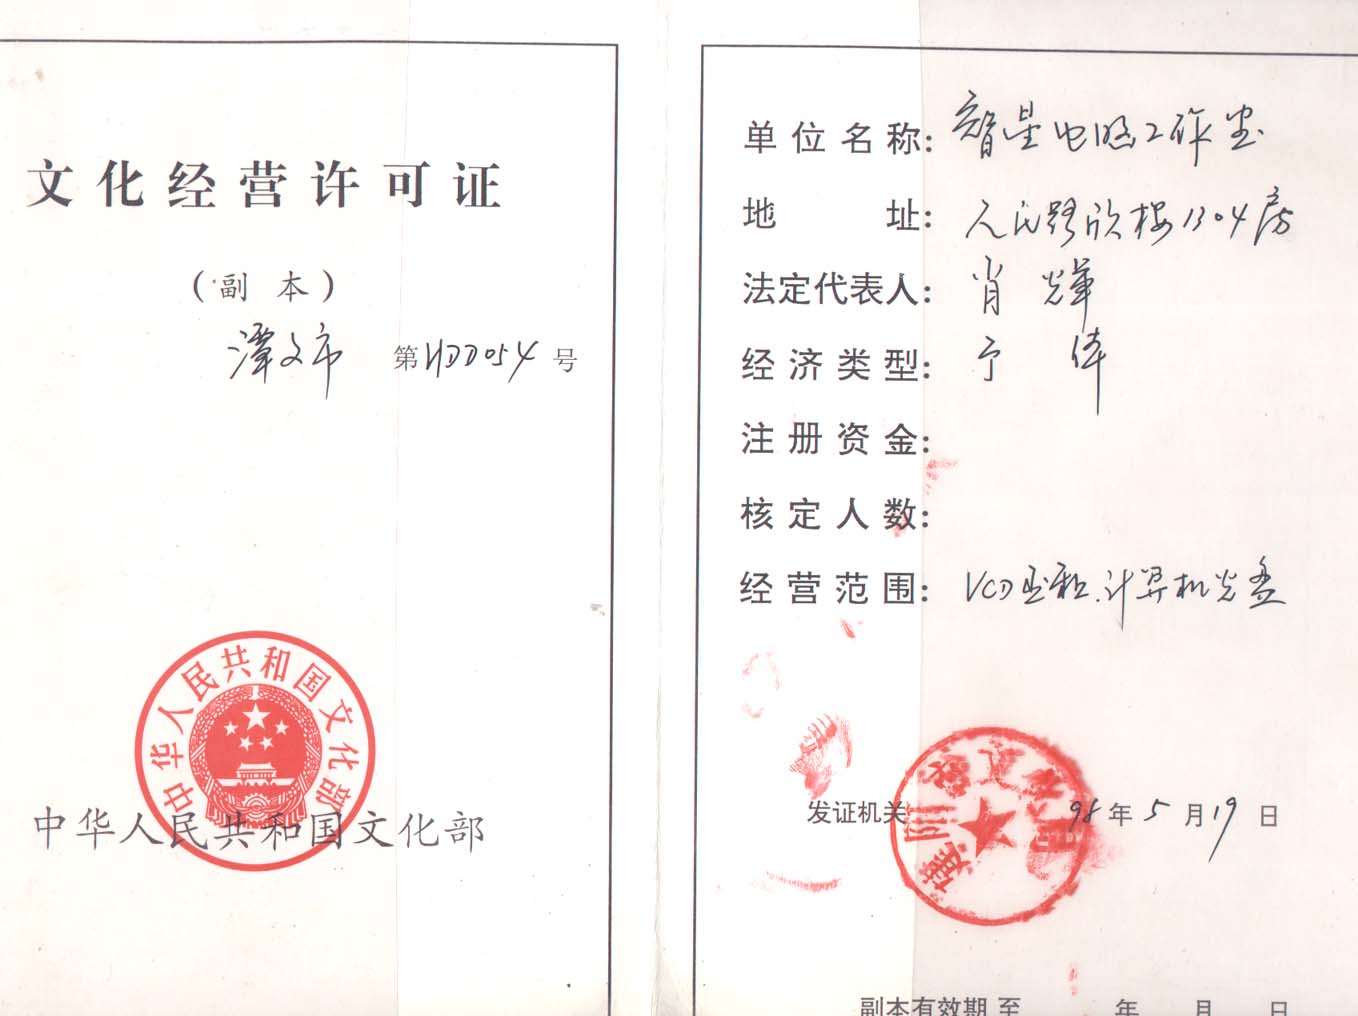 文化经营许可证
(副 本)
潭文市 第HDD054号
中华人民共和国文化部
中华人民共和国文化部
单位名称: 智星电脑工作室
地 址: 人民路欣楼1304房
法定代表人: 肖 辉
经济类型: 个体
注册资金:
核定人数:
经营范围: VCD出租.计算机光盘
发证机关 98年5月19日
副本有效期至 年 月 日